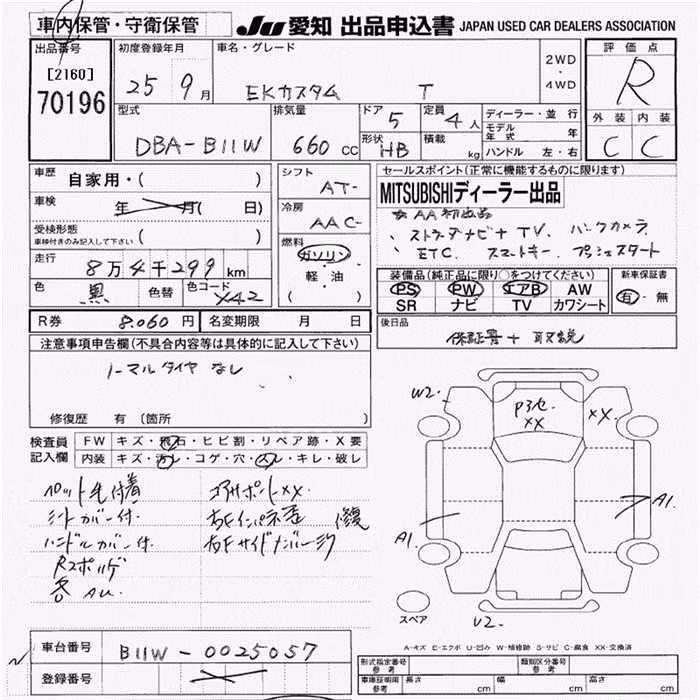 車内保管・守衛保管
JU 愛知 出品申込書 JAPAN USED CAR DEALERS ASSOCIATION
出品番号 初度登録年月 車名・グレード 評価点
[2160] 70196
25 9月 EKカスタム T 2WD・4WD R
型式 排気量 ドア 5 定員 4人 ディーラー・並行 外装 内装
DBA-B11W 660cc 形状 HB 積載 kg モデル年式 年 C C
ハンドル 左・右
車歴 自家用・( ) シフト AT- セールスポイント(正常に機能するものに限ります)
MITSUBISHIディーラー出品
車検 年 月( 日) 冷房 AAC-
AA初出品
ストラーダナビ+TV、バックカメラ
受検形態 車検付きのみ記入して下さい ( )
ETC、スマートキー、プッシュスタート
走行 8万4千299km 燃料 ガソリン・軽・油( )
装備品(純正品に限り○をつけてください) 新車保証書
PS PW エアB AW 有・無
SR ナビ TV カワシート
色 黒 色替 色コード X42
R券 8.060円 名変期限 月 日
後日品 保証書+取説
注意事項申告欄(不具合内容等は具体的に記入して下さい)
ノーマルタイヤなし
修復歴 有 〔箇所 〕
検査員記入欄 FW キズ・飛石・ヒビ割・リペア跡・X要
内装 キズ・汚レ・コゲ・穴・スレ・キレ・破レ
ペット毛付着 コアサポートXX
シートカバー付 右Fインパネ歪 修復
ハンドルカバー付
Rスポ
各AU
W2 P3 XX XX
A1 A1
スペア U2
A-キズ E-エクボ U-凹み W-補修跡 S-サビ C-腐食 XX-交換済
車台番号 B11W-0025057
登録番号
形式指定番号 参考 類別区分番号 参考
車庫証明用 参考 長さ cm 幅 cm 高さ cm